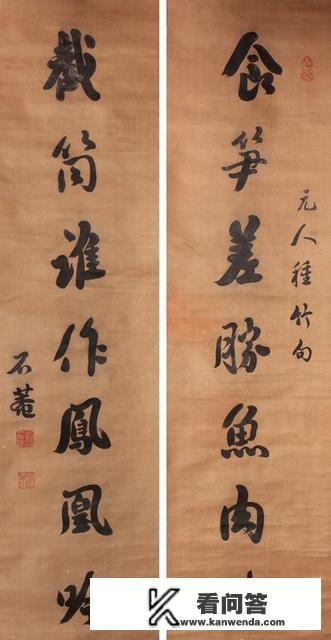 食笋差勝魚肉
元人種竹句
截筒誰作鳳凰吟
石菴
看问答
www.kanwenda.com